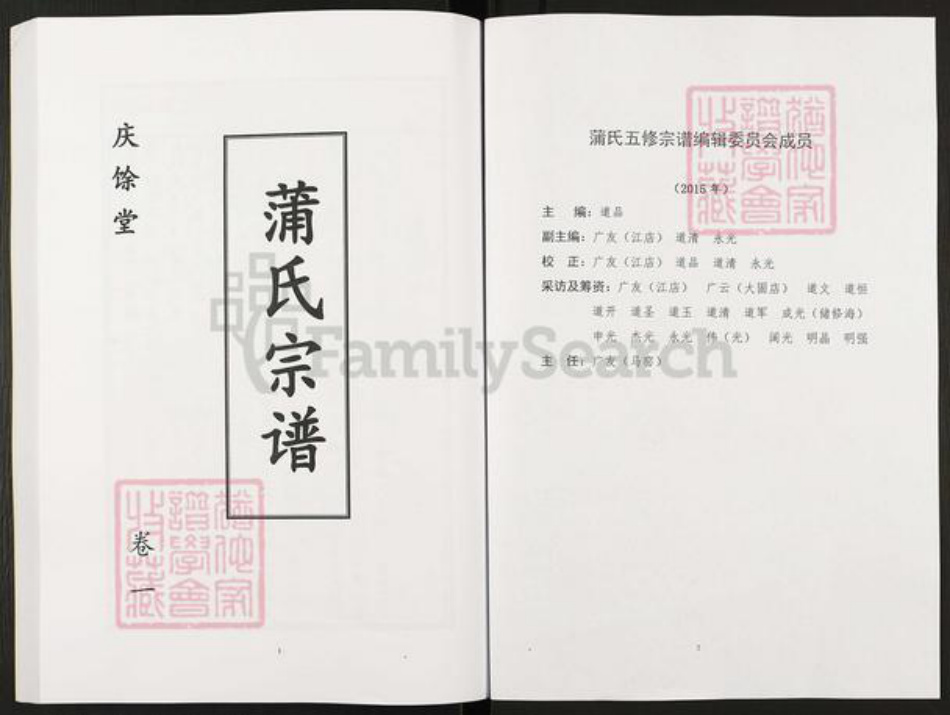 庆馀堂
蒲氏宗谱
卷一
1
蒲氏五修宗谱编辑委员会成员
（2015 年）
主 编：道品
副主编：广友（江店） 道清 永光
校 正：广友（江店） 道品 道清 永光
采访及筹资：广友（江店） 广云（大圆店） 道文 道恒
道开 道圣 道玉 道清 道军 成光（储修海）
申光 杰光 永光 伟（光） 阔光 明晶 明强
主 任：广友（马窑）
FamilySearch